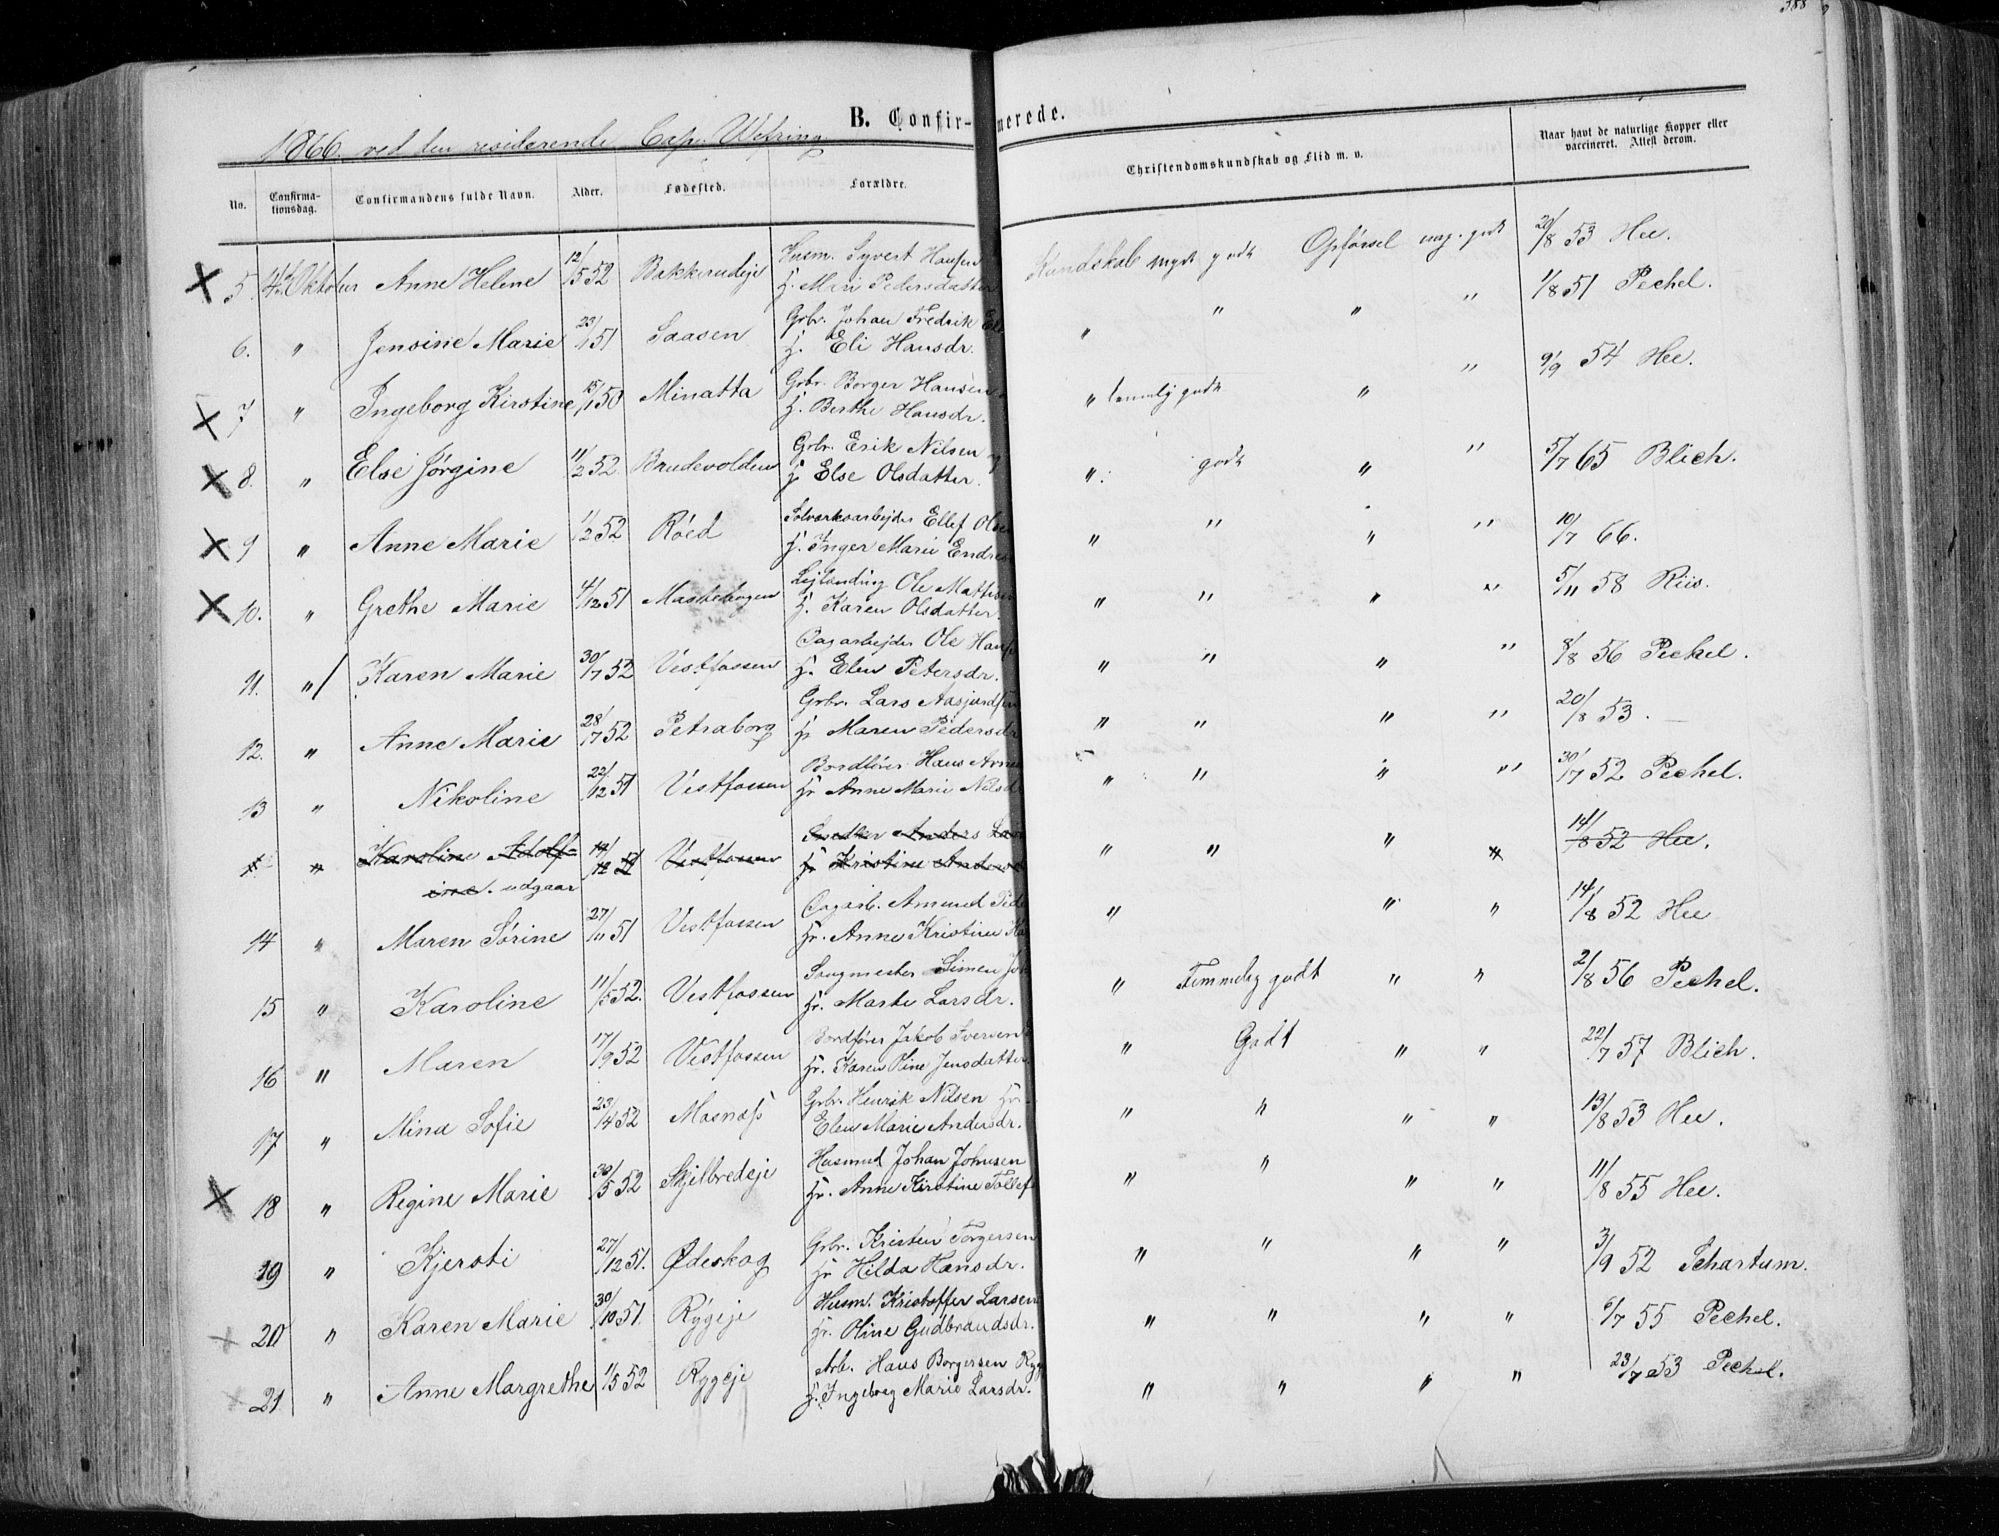 388
B. Confir-merede.
1866. ved den residerende Cap. Wefring
No. Confirma-tionsdag. Confirmandens fulde Navn. Alder. Fødested. Forældre. Christendomskundskab og Flid m. v. Naar havt de naturlige Kopper eller vaccineret. Attest derom.
5. Oktober Anne Helene 12/5 52 Bakkerudeje Husm. Syvert Hansen Kundskab meget godt Opførsel meg. godt 20/8 53 Hee.
H. Mari Pedersdatter
6. " Jensine Marie 23/1 51 Saasen Grbr. Johan Fredrik " " " " 1/8 51 Pechel.
H. Eli Hansdr.
7 " Ingeborg Kirstine 15/1 50 Minatta Grbr. Borger Hansen " temmelig godt " " 9/9 54 Hee.
H. Berthe Hansdr.
8. " Else Jørgine 11/2 52 Brudevolden Grbr. Erik Nilsen og " godt " " 5/7 65 Blich.
H. Else Olsdatter.
9 " Anne Marie 1/2 52 Røed Solværksarbejder Ellef Olsen " " " " 10/7 66.
H. Inger Marie Endres
10. " Grethe Marie 4/12 51 Mastebogen Lejlending Ole Mathisen " " " " 5/11 58 Riis.
H. Karen Olsdatter.
11. " Karen Marie 30/7 52 Vestfossen Dagarbejder Ole Hans " " " " 8/8 56 Pechel.
H. Elen Petersdr.
12. " Anne Marie 28/7 52 Petraborg Grbr. Lars Aasjordsen " " " " 20/8 53. —
H. Maren Pedersdr
13 " Nikoline 22/12 51 Vestfossen Bordfører Hans Arne " " " " 30/7 52 Pechel.
Hr Anne Marie Nilsdr
" Karoline Adolf- 19/12 51 Vestfossen Anders Lar " " " " 14/8 52 Hee.
ine. udgaar Hr Kristine Anders
14 " Maren Sørine 27/11 51 Vestfossen Dagarb. Amund Pede " " " 14/8 52 Hee
Hr. Anne Kristine Ha
15 " Karoline 11/5 52. Vestfossen Saugmester Simen Joh " Temmelig godt " " 2/8 56 Pechel.
Hr. Marte Larsdr.
16 " Maren 17/9 52 Vestfossen Bordfører Jakob Iversen " Godt " " 22/7 57 Blich.
Hr. Karen Oline Jensdatter
17 " Mina Sofie 23/4 52 Mosnæss Grbr. Henrik Nilsen Hr. " " " " 13/8 53 Hee.
Elen Marie Andersdr.
18 " Regine Marie 30/5 52 Skjelbredeje Husmd Johan Johnsen " " " " 11/8 55 Hee.
Hr. Anne Kirstine Tollef
19 " Kjersti 27/12 51. Ødeskog Grbr. Kristen Torgersen " " " " 3/9 52 Schartum.
Hr Hilda Hansdr.
20 " Karen Marie 30/10 51. Rygeje Husm. Kristoffer Larsen " " " " 6/7 55 Pechel.
Hr. Oline Gudbrandsdr.
21 " Anne Margrethe 1/5 52 Rygeje Arb. Hans Borgersen Ryg " " " " 23/7 53 Pechel.
H. Ingeborg Marie Larsdr.